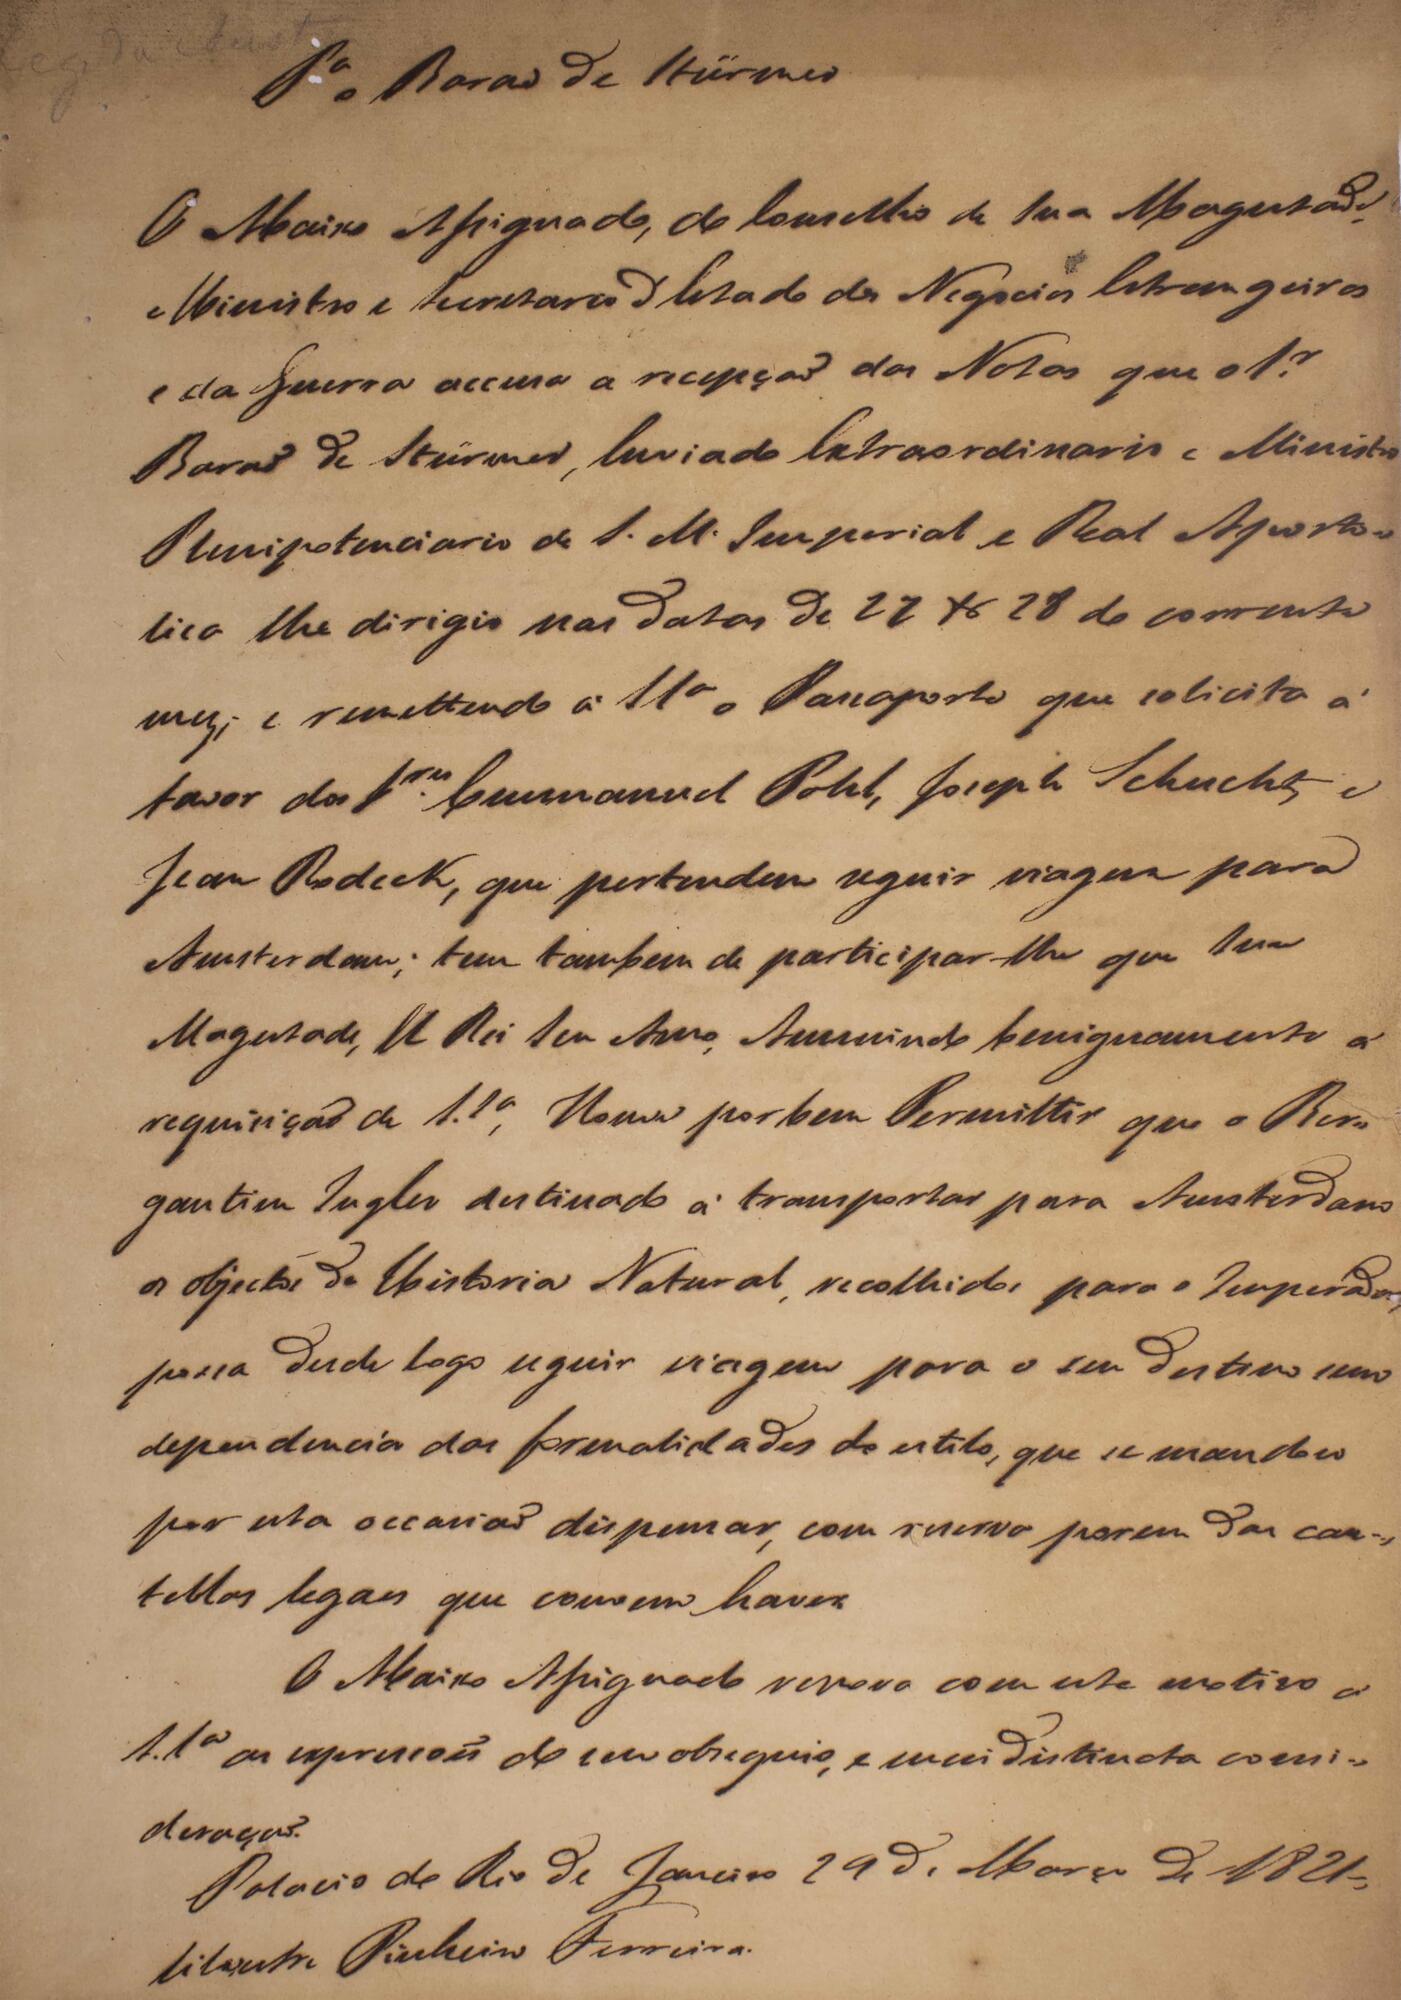 Leg. da Austria
P.a o Barão de Stürmer
O Abaixo Assignado, do Conselho de Sua Magestade,
e Ministro e Secretario d'Estado dos Negocios Estrangeiros
e da Guerra accusa a recepção das Notas que o S.r
Barão de Stürmer, Enviado Extraordinario e Ministro
Plenipotenciario de S. M. Imperial e Real Aposto-
lica lhe dirigio nas datas de 27 & 28 do corrente
mez; e remettendo á S.S.a o Passaporte que solicita á
favor dos S.res Emmanuel Pohl, Joseph Schucht, e
Jean Rodeck, que pertendem seguir viagem para
Amsterdam; tem tambem de participar-lhe que Sua
Magestade, El Rei Seu Amo, Annuindo benignamente á
requisição de S.S.a, Houve por bem Permittir que o Ber-
gantim Inglez destinado á transportar para Amsterdam
os objectos de Historia Natural, recolhidos para o Imperador,
possa desde logo seguir viagem para o seu destino sem
dependencia das formalidades do estilo, que se mandão
por esta occasião dispensar, com reserva porem das cau-
tellas legaes que convem haver
O Abaixo Assignado renova com este motivo á
S.S.a as expressoẽs do seu obsequio, e mui distincta consi-
deração.
Palacio do Rio de Janeiro 29 de Março de 1821-
Silvestre Pinheiro Ferreira.